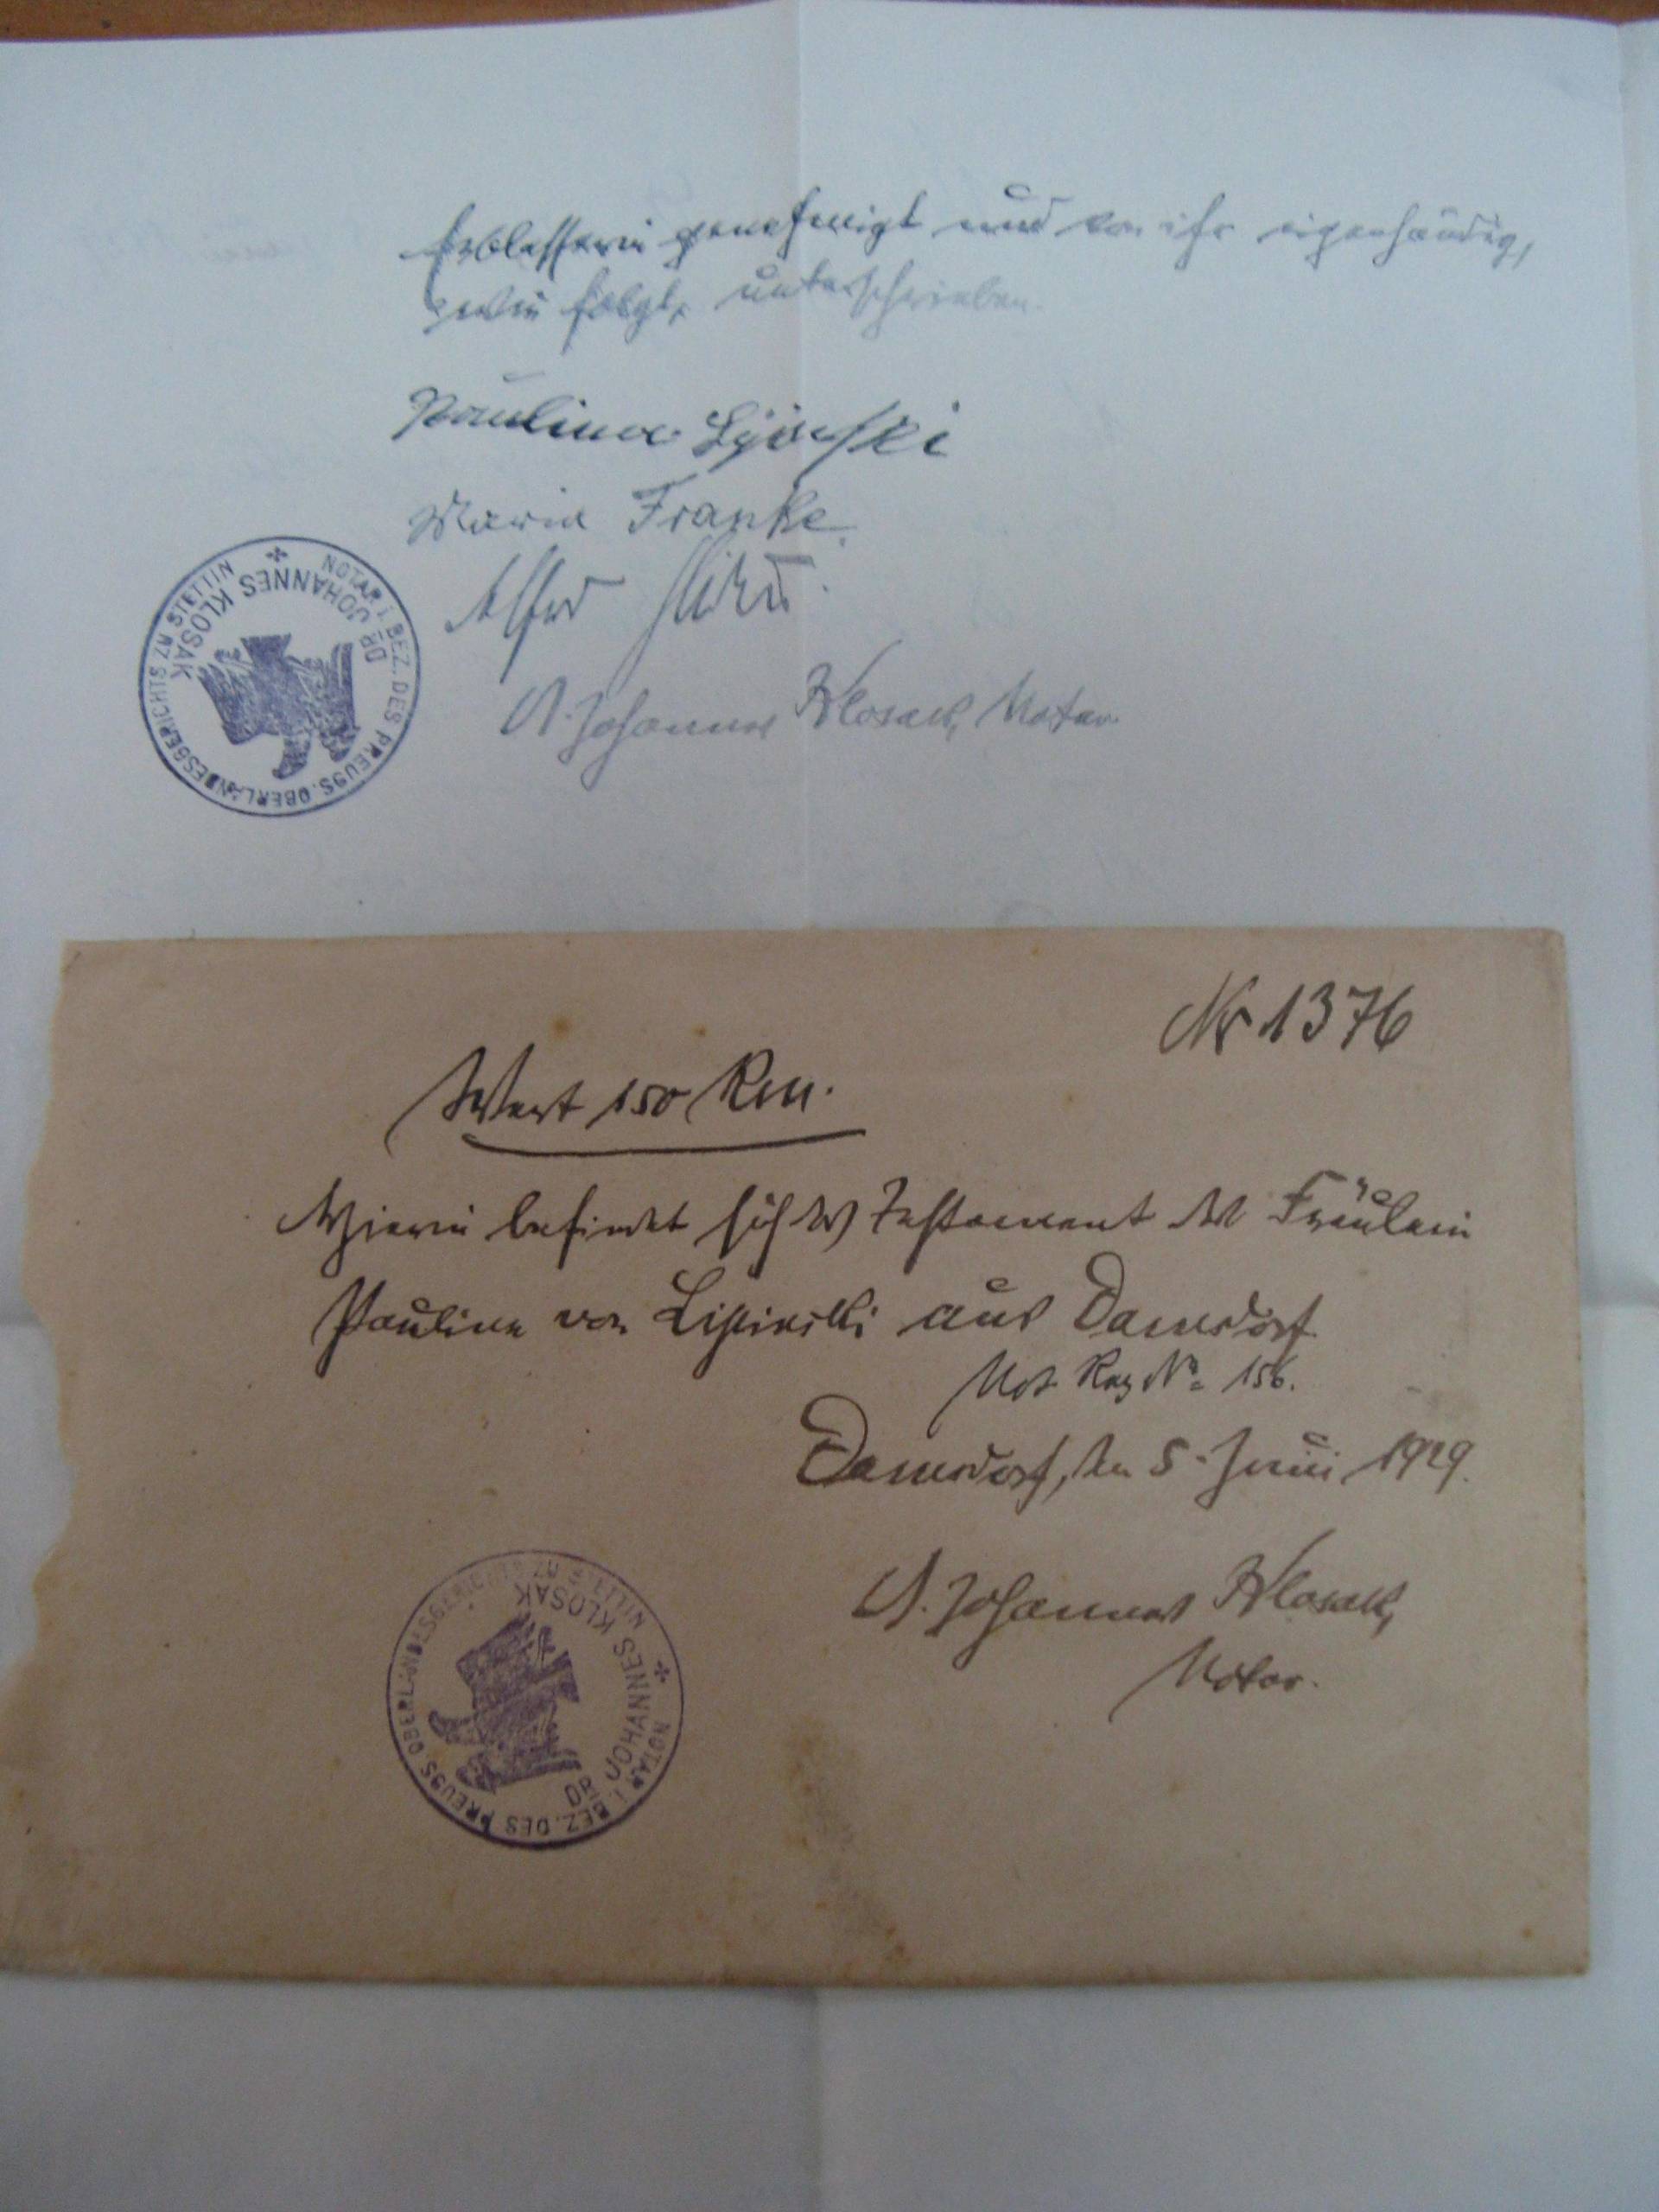 Erblasserin genehmigt und von ihr eigenhändig,
wie folgt, unterschrieben.
Pauline
Maria Franke
NOTAR I. BEZ. DES PREUSS. OBERLANDESGERICHTS ZU STETTIN
DR JOHANNES KLOSAK
Dr. Johannes Klosak, Notar
Nr 1376
Wert 150 Rm.
Hierin befindet sich das Testament des Fräulein
Pauline von Lipinski aus Damsdorf
Not Reg Nr. 156.
Damsdorf, den 5. Juni 1929.
Dr. Johannes Klosak,
Notar.
NOTAR I. BEZ. DES PREUSS. OBERLANDESGERICHTS ZU STETTIN
DR JOHANNES KLOSAK